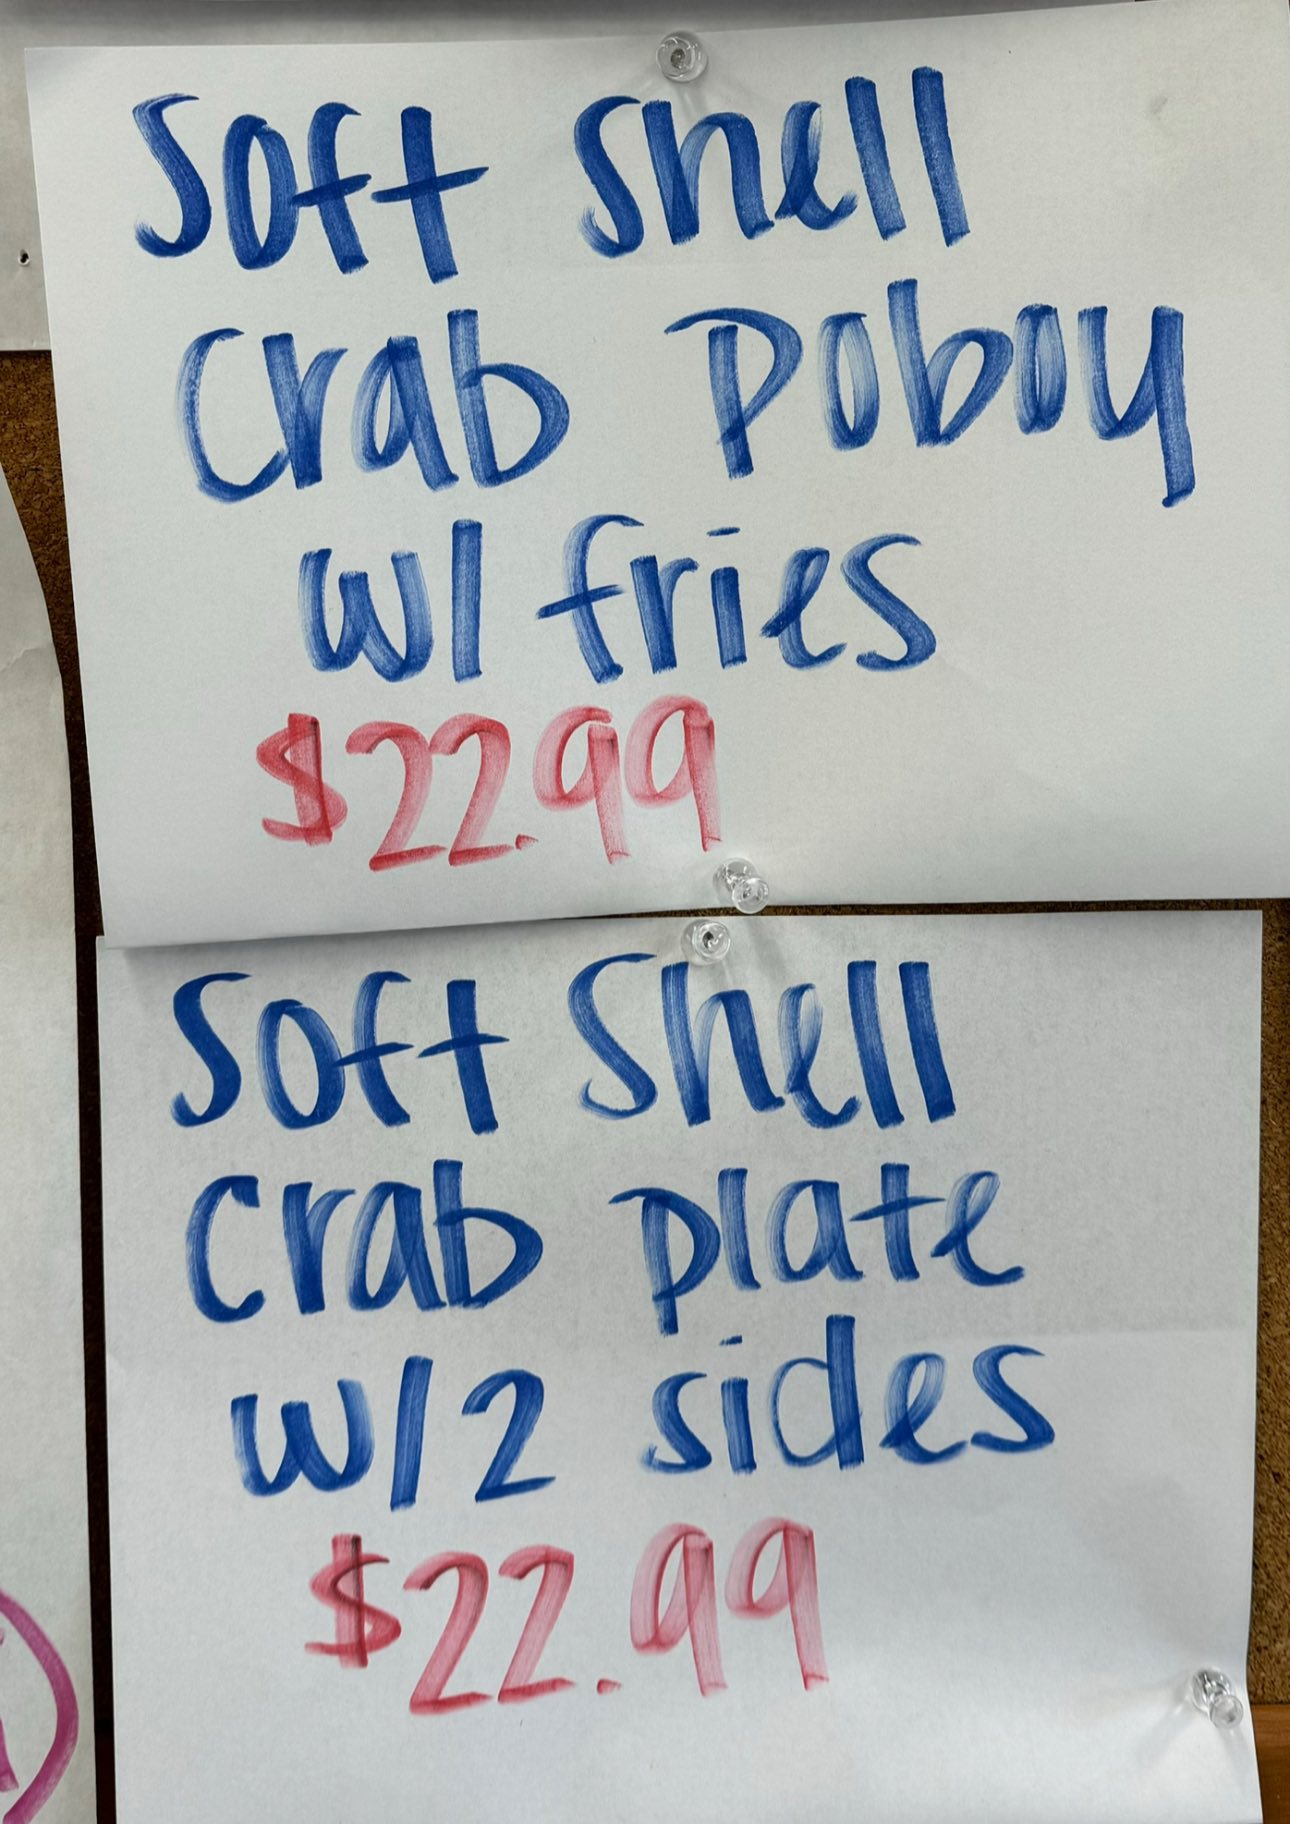 Soft Shell
Crab Poboy
w/ fries
$22.99
Soft Shell
Crab plate
w/2 sides
$22.99